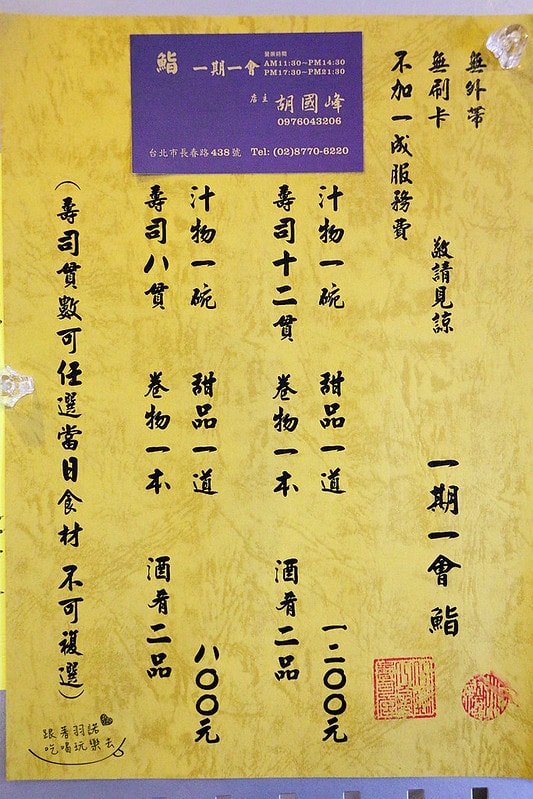 鮨 一期一會
營業時間
AM11:30~PM14:30
PM17:30~PM21:30
店主 胡國峰
0976043206
台北市長春路438號 Tel: (02)8770-6220
無外帶
無刷卡 敬請見諒
不加一成服務費
一期一會 鮨
壽司十二貫 卷物一本 酒肴二品
汁物一碗 甜品一道 一二〇〇元
壽司八貫 卷物一本 酒肴二品
汁物一碗 甜品一道 八〇〇元
(壽司貫數可任選當日食材 不可複選)
跟著羽諾
吃喝玩樂去